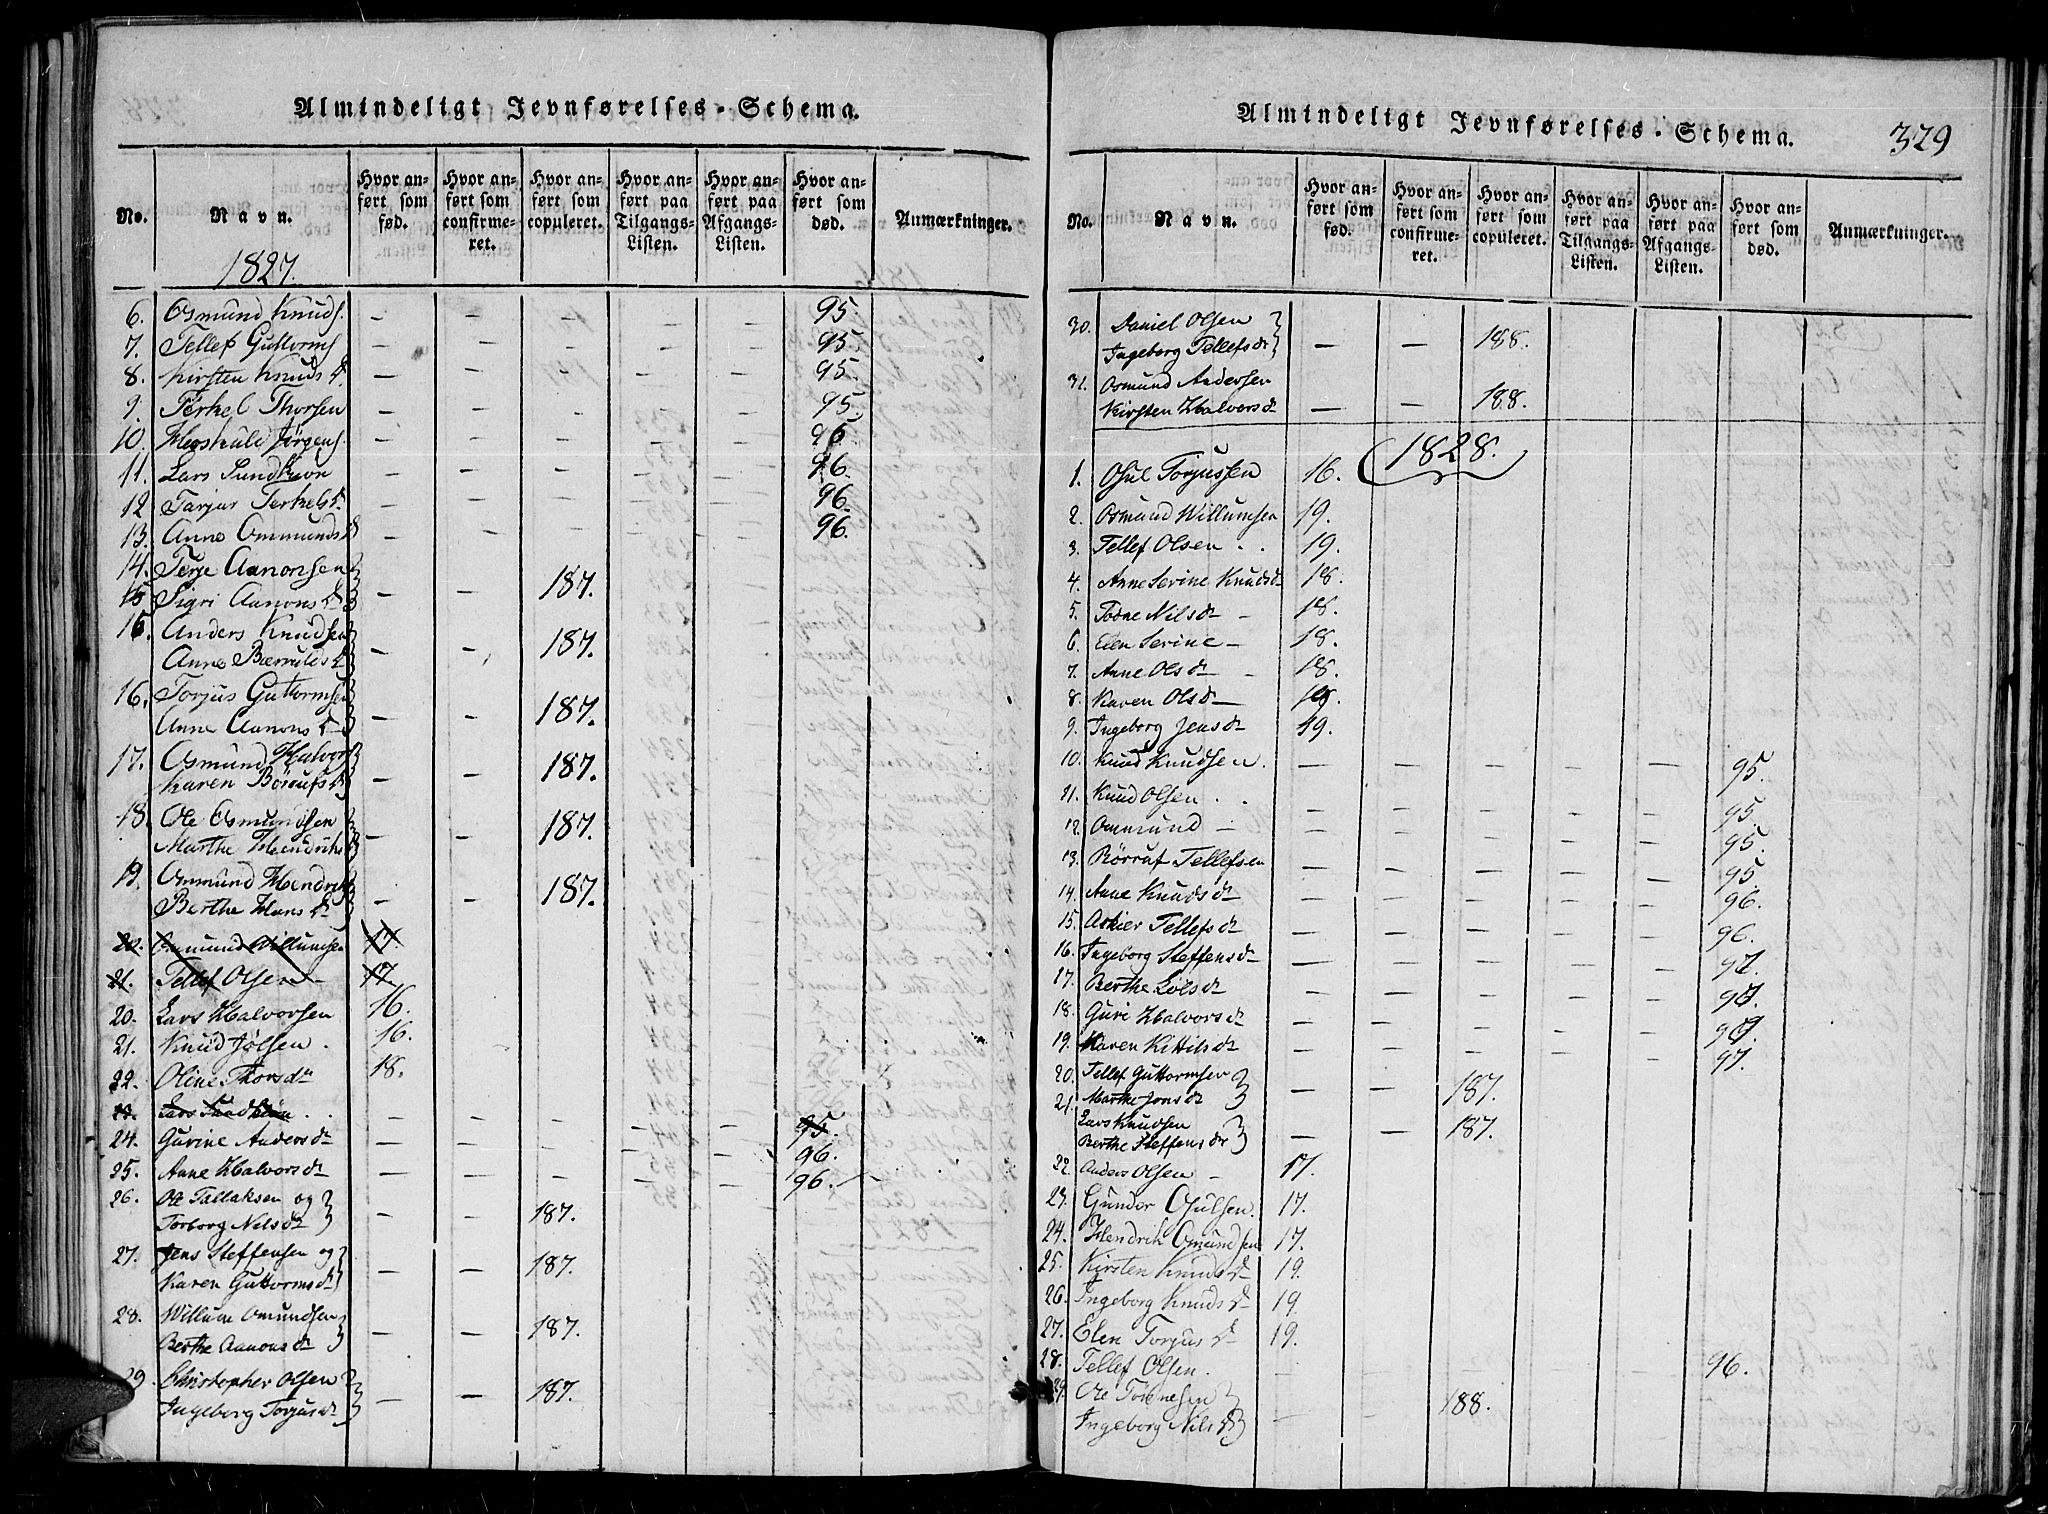 Almindeligt Jevnførelses-Schema.
No. Navn. Hvor anført som fød. Hvor anført som confirmeret. Hvor anført som copuleret. Hvor anført paa Tilgangs-Listen. Hvor anført paa Afgangs-Listen. Hvor anført som død. Anmærkninger.
1827.
6. Osmund Knuds. – – – – – 95.
7. Tellef Guttorms – – – – – 95.
8. Kirsten Knuds dr. – – – – – 95.
9. Terkel Thorsen – – – – – 95.
10. Jørgens. – – – – – 96.
11. Lars – – – – – 96.
12 Tarjer Terkels dr. – – – – – 96.
13. Anne Ommunds dr – – – – – 96.
14. Terje Aanonsen
15 Sigri Aanons dr – – 187.
16. Anders Knudsen
Anne dr – – 187.
16. Torjus Guttormsen
Anne Aanons dr – – 187.
17. Osmund Halvors
Karen dr – – 187.
18. Ole Osmundsen
Marthe Hendriks – – 187.
19. Ommund Hendriks
Berthe Hans dr – – 187.
20. Ommund Willumsen 17
21. Tellef Olsen – 17.
20. Lars Halvorsen 16.
21. Knud Jølsen . 16.
22. Oline Thors dr 18.
23. Lars . . – – – – – 95.
24. Gurine Anders dr – – – – – 96.
25. Anne Halvors dr – – – – – 96.
26. Ole Tallaksen og
Torborg Nils dr – – 187.
27. Jens Steffensen og
Karen Guttorms dr – – 187.
28. Willum Omundsen
Berthe Aanons dr – – 187.
29. Christopher Olsen
Ingeborg Torjus dr – – 187.
Almindeligt Jevnførelses-Schema.
329
No. Navn. Hvor anført som fød. Hvor anført som confirmeret. Hvor anført som copuleret. Hvor anført paa Tilgangs-Listen. Hvor anført paa Afgangs-Listen. Hvor anført som død. Anmærkninger.
30. Daniel Olsen
Ingeborg Tellefs dr – – 188.
31. Osmund Andersen
Kirsten Halvors dr – – 188.
1828.
1. Osul Torjussen 16.
2. Osmund Willumsen 19.
3. Tellef Olsen . . 19.
4. Anne Serine Knuds dr 18.
5. Tone Nils dr – 18.
6. Elen Serine – 18.
7. Anne Ols dr – 18.
8. Karen Ols dr – 18.
9. Ingeborg Jens dr 19.
10. Knud Knudsen. – – – – – 95.
11. Knud Olsen . . – – – – – 95.
12. Ommund – – – – – – 95.
13. Tellefsen – – – – – 95
14. Anne Knuds dr – – – – – 96.
15. Tellefs dr – – – – – 96.
16. Ingeborg Steffens dr – – – – – 97.
17. Berthe dr – – – – – 97.
18. Guri Halvors dr – – – – – 97.
19. Karen Kittils dr – – – – – 97.
20. Tellef Guttormsen
Marthe Jons dr – – 187.
21. Lars Knudsen
Berthe Steffens dr – – 187.
22. Anders Olsen – 17.
23. Gunder Osulsen. 17.
24. Hendrik Omundsen 17.
25. Kirsten Knuds dr 19.
26. Ingeborg Knuds dr 19.
27. Elen Torjus dr 19.
28. Tellef Olsen. – – – – – 96.
29. Ole
Ingeborg Nils dr – – 188.